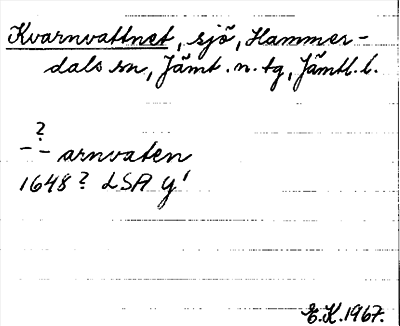 Kvarnvattnet, sjö, Hammer-
dals sn, Jämt. n. tg, Jämtl. l.
?
- - arnvaten
1648? LSA y'
E.K. 1967.